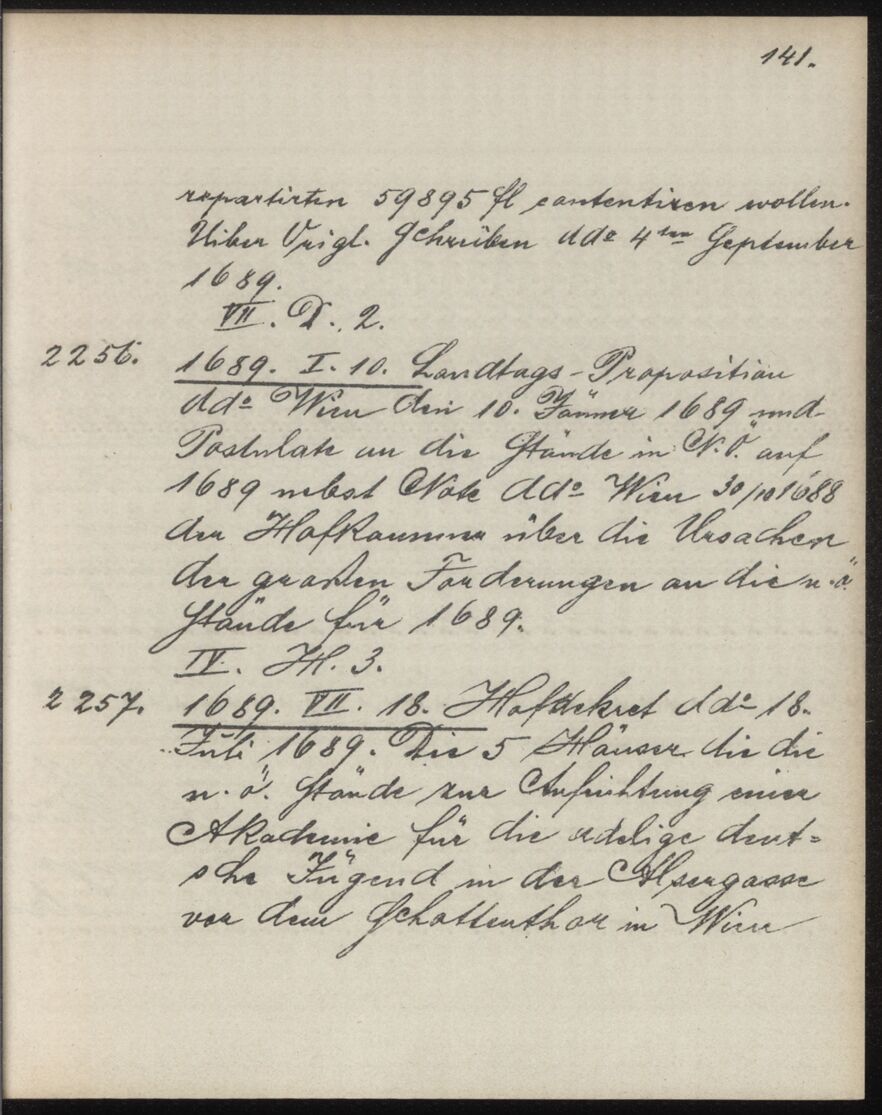 141.
repartirten 59895 fl contentiren wollen.
Uiber Origl. Schreiben ddo 4ten September
1689.
VII. D. 2.
2256. 1689. I. 10. Landtags-Proposition
ddo Wien den 10. Jänner 1689 und
Postulate an die Stände in N.Ö. auf
1689 nebst Note ddo Wien 30/10 1688
der Hofkammer über die Ursachen
der großen Forderungen an die n.ö.
Stände für 1689.
IV. H. 3.
2257. 1689. VII. 18. Hofdekret ddo 18.
Juli 1689. Die 5 Häuser die die
n.ö. Stände zur Aufrichtung einer
Akademie für die adelige deut=
sche Jugend in der Alsergasse
vor dem Schottenthor in Wien